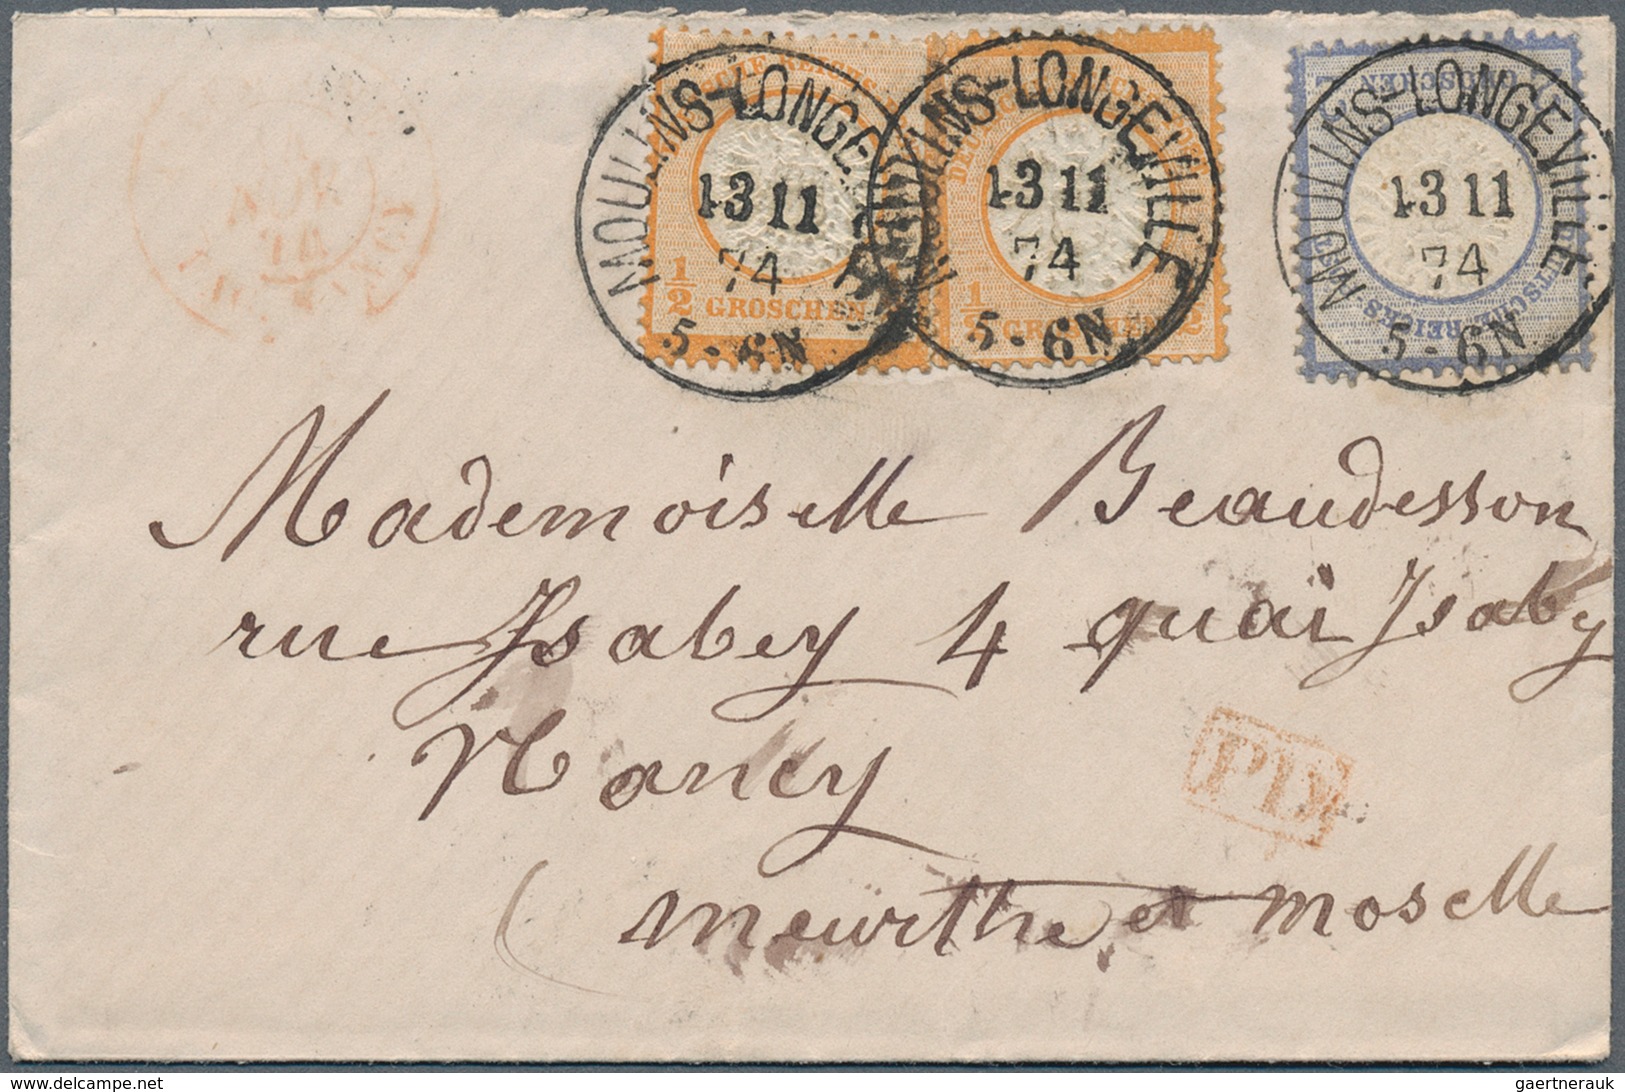 MOULINS-LONGEVILLE
13 11
74
5-6N
MOULINS-LONGEVILLE
13 11
74
5-6N
MOULINS-LONGEVILLE
13 11
74
5-6N
½ GROSCHEN
GROSCHEN
Mademoiselle Beaudesson
rue Isabey 4 quai Isabey
Nancy
PD
(Meurthe et Moselle
delcampe.net
gaertnerauk